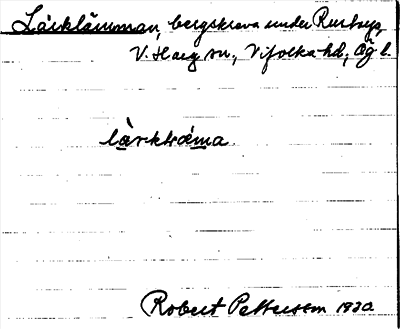 Lärklämman, bergskreva under Rurtorp,
V. Harg sn., Vifolka hd., Ög l.
lærkklæma.
Robert Pettersson 1930